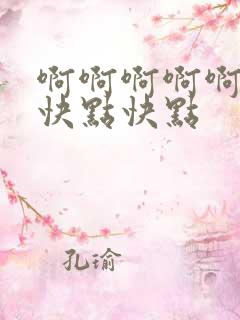 啊啊啊啊啊
快點快點
孔瑜